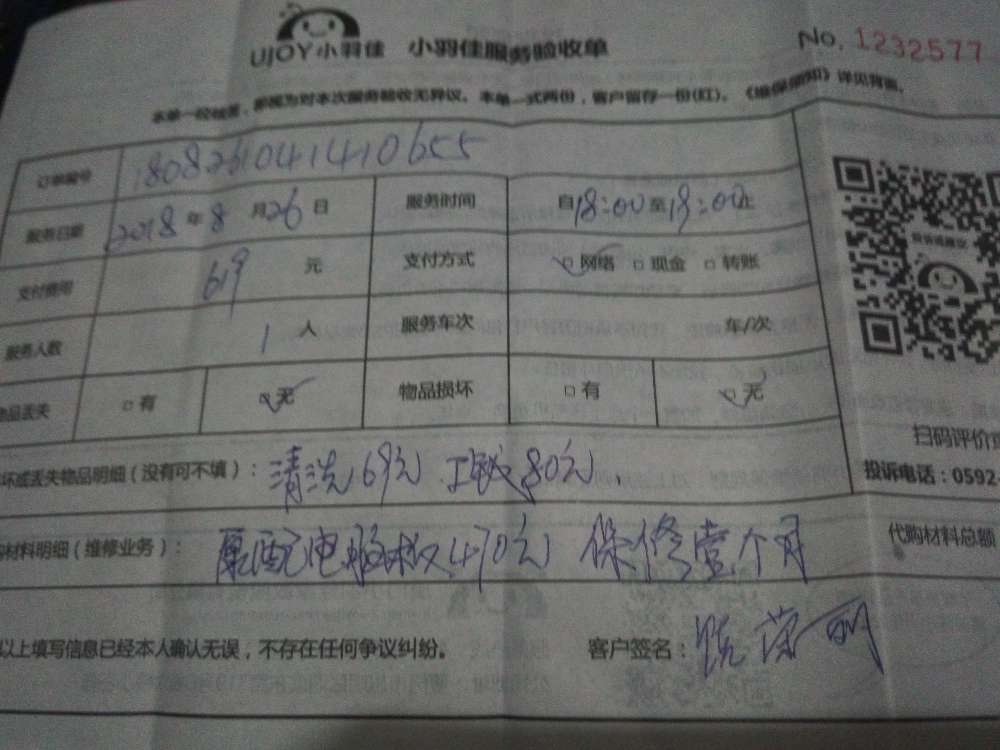 UJOY小羽佳 小羽佳服务验收单 No. 1232577
本单一经签署，即视为对本次服务验收无异议。本单一式两份，客户留存一份(红)。《维保须知》详见背面。
订单编号 1808261041410655
服务日期 2018年8月26日 服务时间 自18:00至19:00止
支付费用 619元 支付方式 网络 现金 转账
服务人数 1人 服务车次 车/次
物品丢失 有 无 物品损坏 有 无
坏或丢失物品明细（没有可不填）：清洗69元 工钱80元.
扫码评价
投诉电话：0592-
材料明细（维修业务）：原配电脑板470元 保修壹个月
代购材料总额
以上填写信息已经本人确认无误，不存在任何争议纠纷。 客户签名：